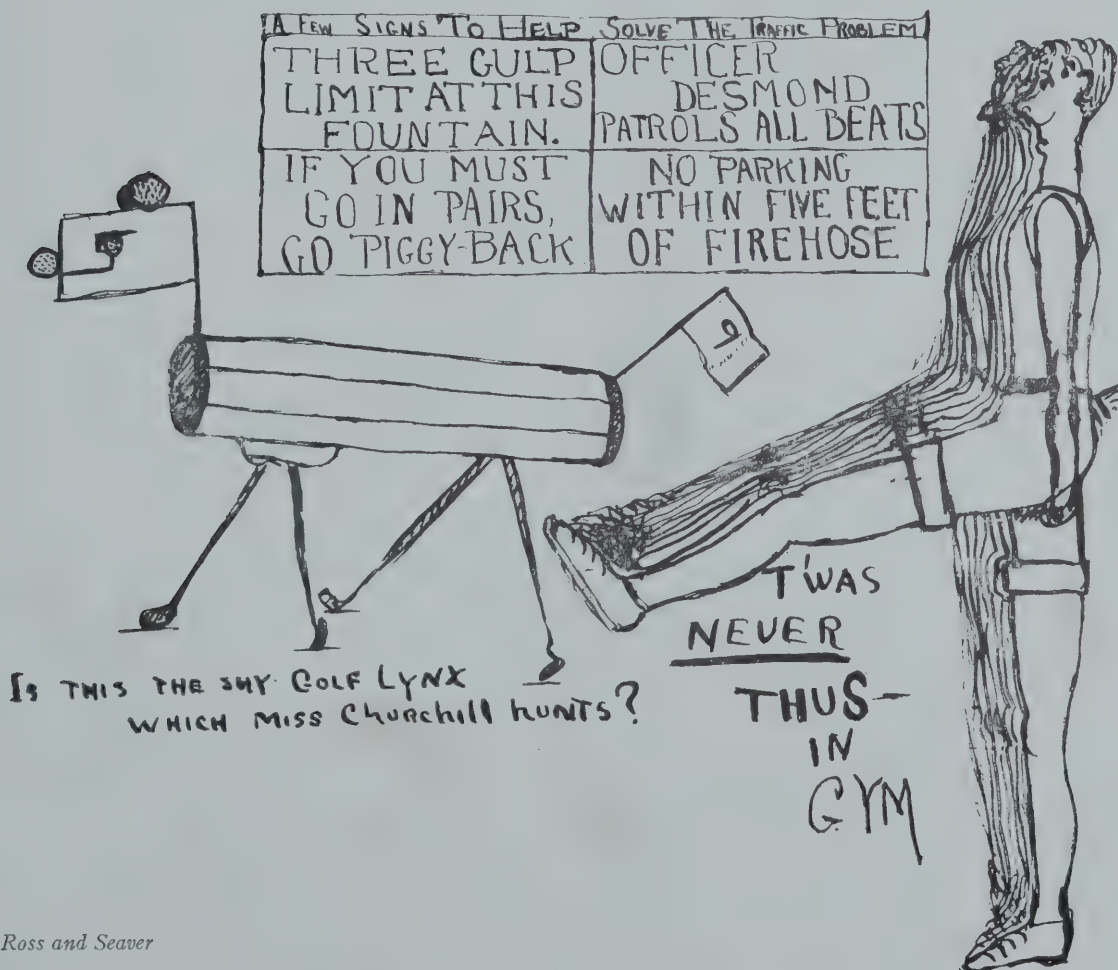 A FEW SIGNS TO HELP SOLVE THE TRAFFIC PROBLEM
THREE GULP
LIMIT AT THIS
FOUNTAIN.
OFFICER
DESMOND
PATROLS ALL BEATS
IF YOU MUST
GO IN PAIRS,
GO PIGGY-BACK
NO PARKING
WITHIN FIVE FEET
OF FIREHOSE
9
IS THIS THE SHY GOLF LYNX
WHICH MISS CHURCHILL HUNTS?
T'WAS
NEVER
THUS-
IN
GYM
Ross and Seaver